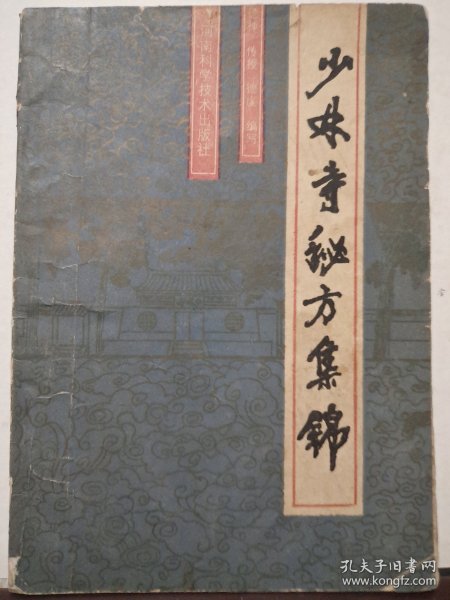 少林寺秘方集锦
编写
河南科学技术出版社
孔夫子旧书网
www.kongfz.com